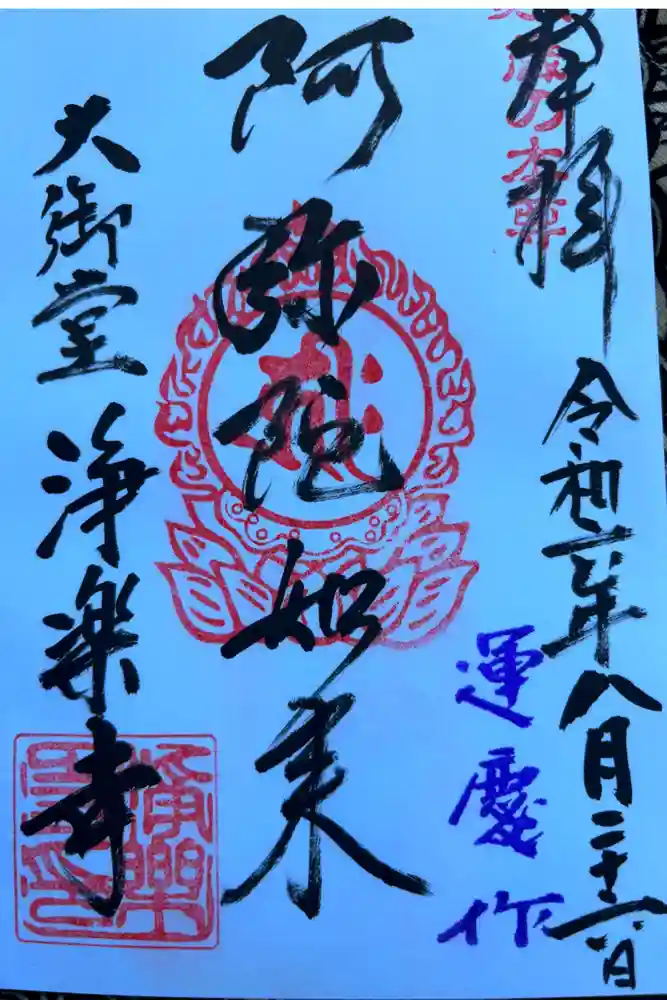 奉拝
令和二年八月二十六日
運慶作
阿弥陀如来
大御堂 浄楽寺